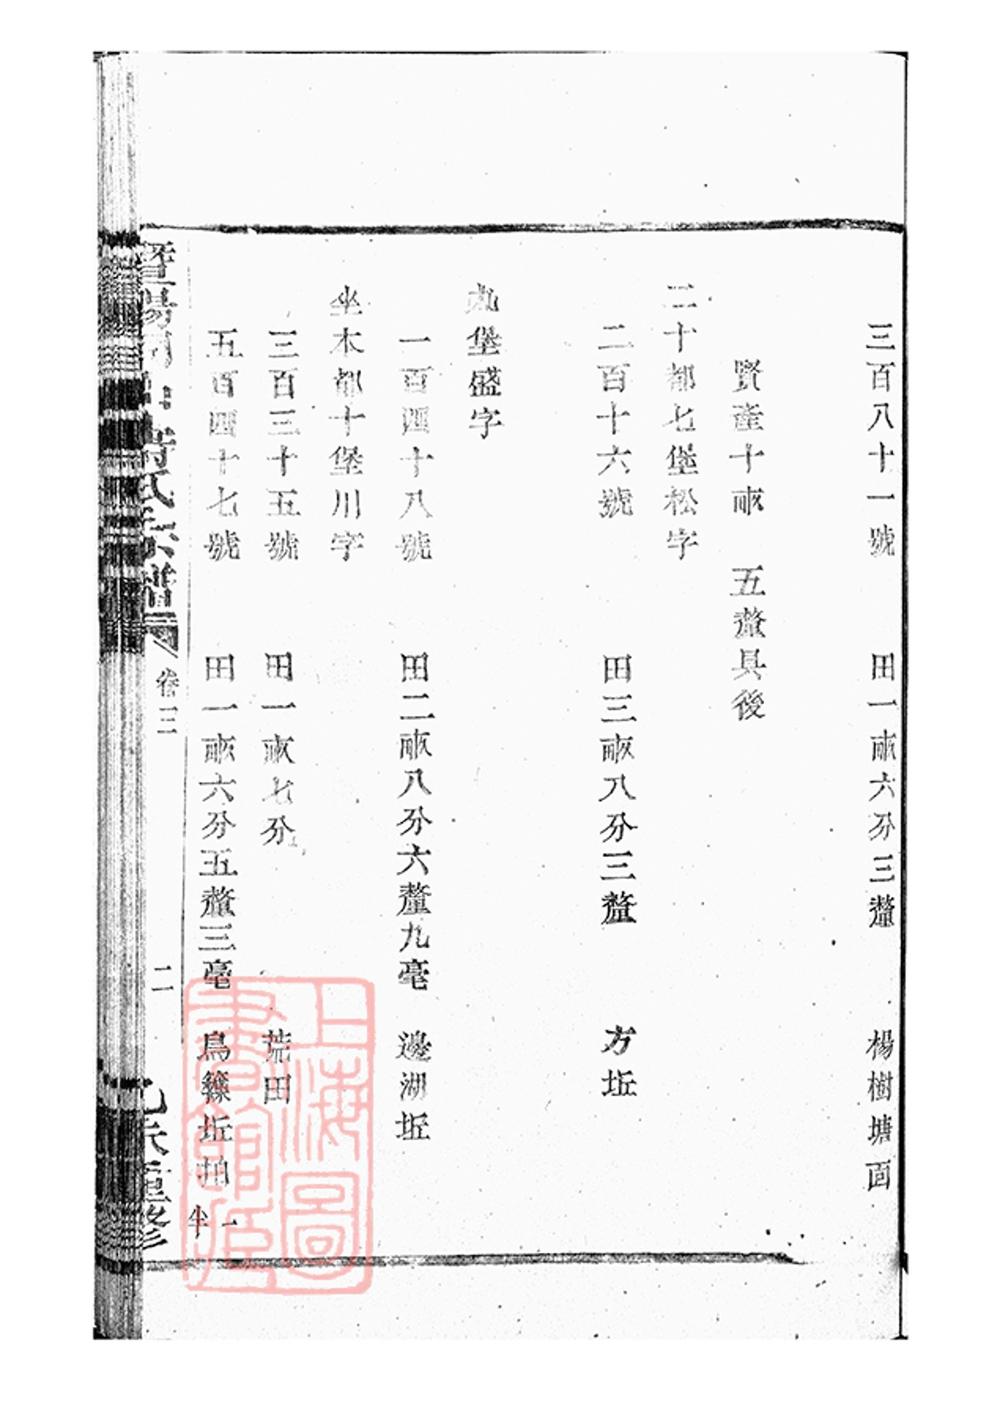 三百八十一號 田一畝六分三釐 楊樹塘面
賢產十畝 五釐具後
二十都七堡松字
二百十六號 田三畝八分三釐 方坵
九堡盛字
一百四十八號 田二畝八分六釐九毫 邊湖坵
坐木都十堡川字
三百三十五號 田一畝七分 荒田
五百四十七號 田一畝六分五釐三毫 鳥籙坵拍
一
尖
氏宗譜
卷三
二
乙未重修
上海圖
書館藏